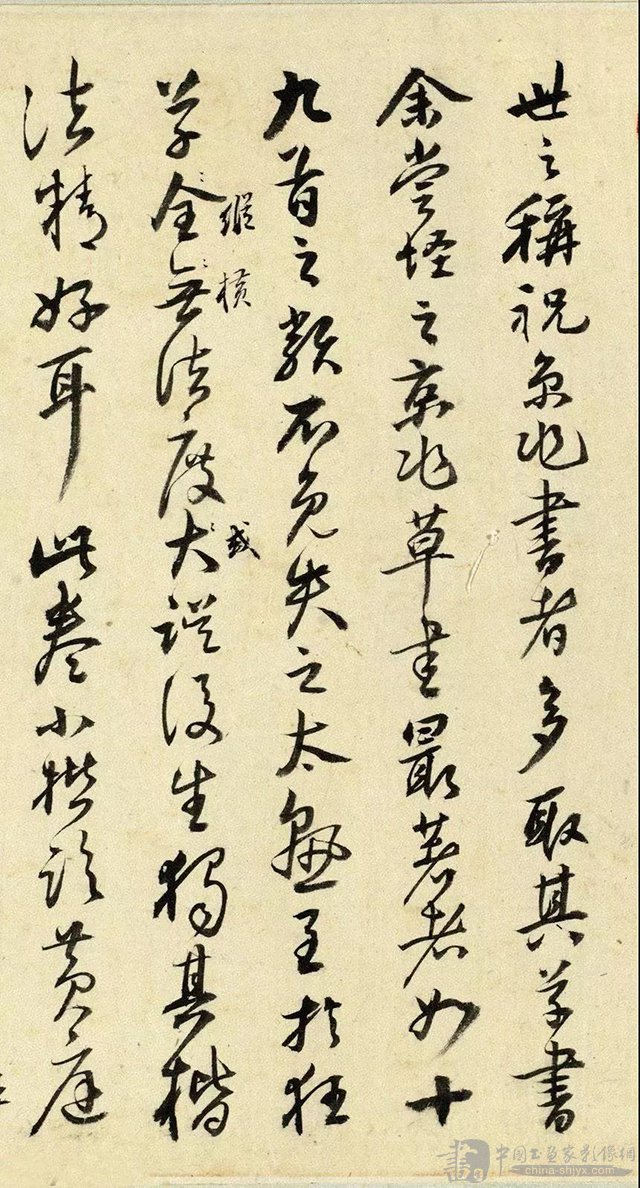 世之稱祝京兆書者多取其草書
余嘗怪之京兆草書最著者如十
九首之類不免失之太至於狂
縱橫
或
草全無法度大誤後生獨其楷
法精好耳此卷小楷臨黃庭
書 中国书画家影像網
www.china-shjyx.com